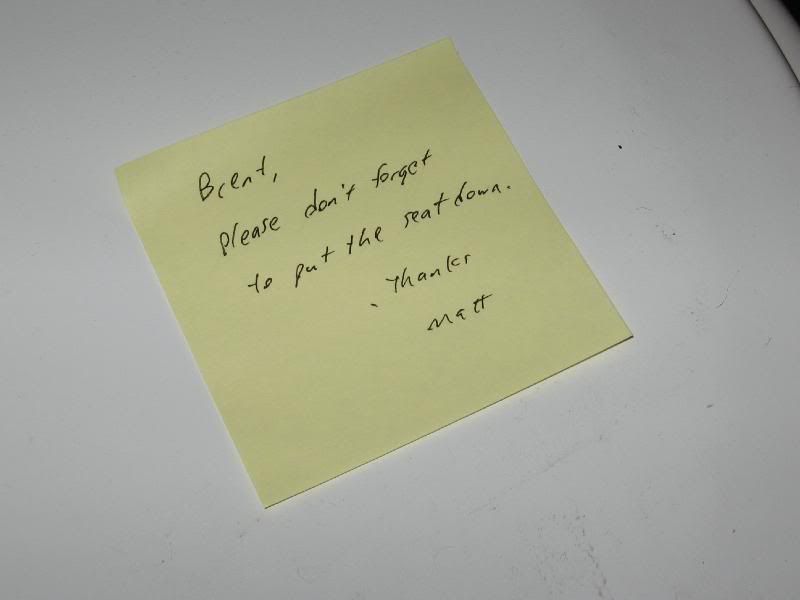 Brent,
please don't forget
to put the seat down.
- Thanks
Matt